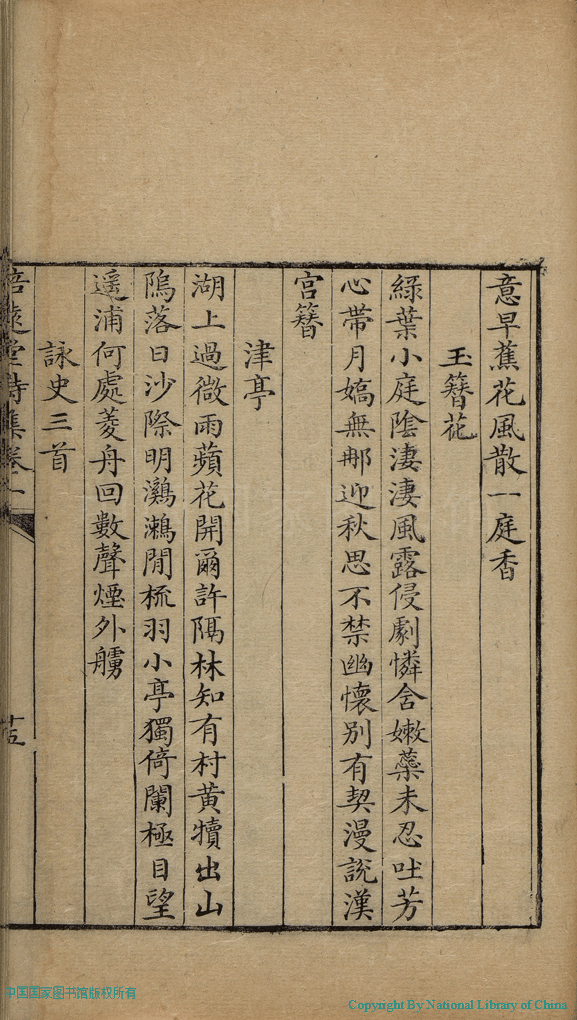 意早蕉花風散一庭香
玉簪花
綠葉小庭陰淒淒風露侵劇憐含嫩蘂未忍吐芳
心帶月嬌無那迎秋思不禁幽懷別有契漫說漢
宮簪
津亭
湖上過微雨蘋花開爾許隔林知有村黃犢出山
隖落日沙際明鸂鷘閒梳羽小亭獨倚闌極目望
遥浦何處菱舟回數聲煙外艣
詠史三首
培遠堂詩集卷一
十五
中国国家图书馆版权所有
Copyright By National Library of China